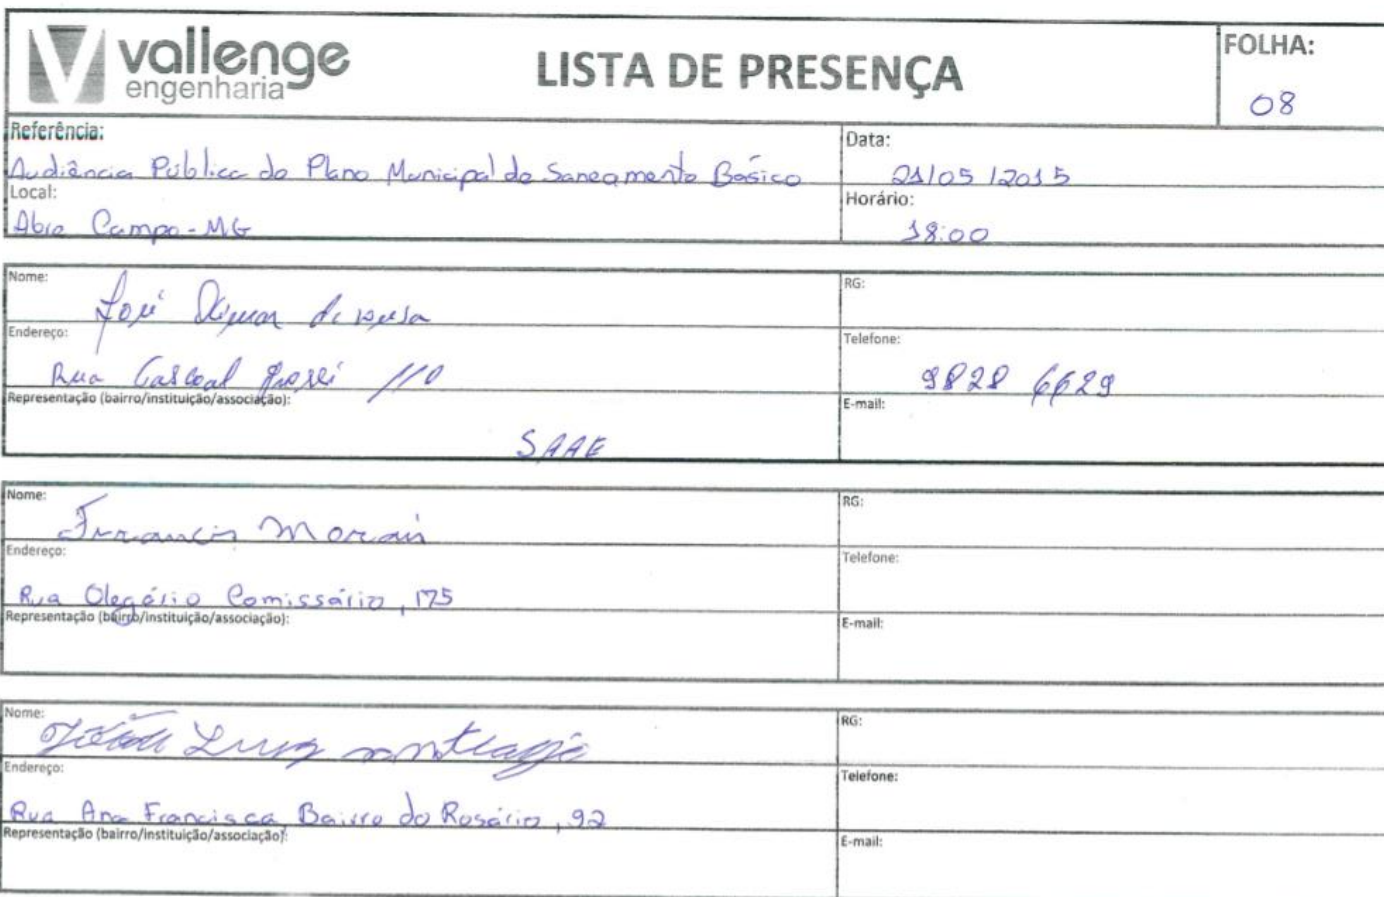 vallenge
engenharia
LISTA DE PRESENÇA
FOLHA:
08
Referência:
Audiência Pública do Plano Municipal de Saneamento Básico
Data:
21/05/2015
Local:
Abre Campo-MG
Horário:
18:00
Nome:
José de
RG:
Endereço:
Rua 110
Telefone:
9828 6629
Representação (bairro/instituição/associação):
SAAE
E-mail:
Nome:
Francis Morais
RG:
Endereço:
Rua Olegário Comissário, 175
Telefone:
Representação (bairro/instituição/associação):
E-mail:
Nome:
Luiz
RG:
Endereço:
Rua Ana Francisca, Bairro do Rosário, 92
Telefone:
Representação (bairro/instituição/associação):
E-mail: